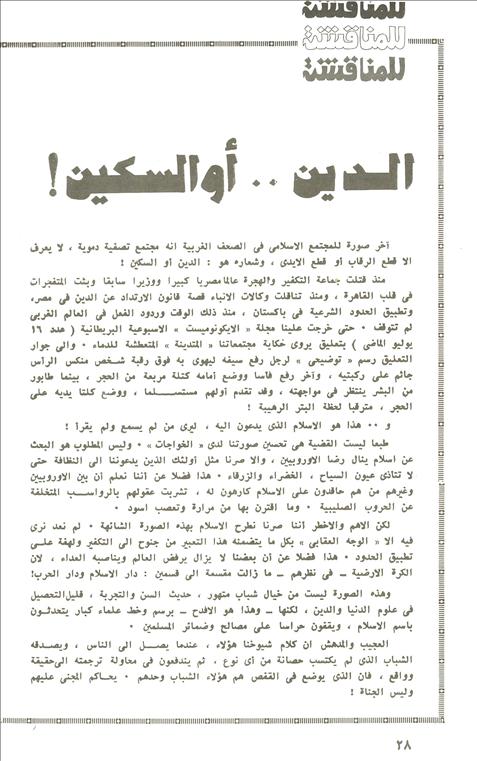 للمناقشة
للمناقشة
للمناقشة
الدين .. أو السكين !
آخر صورة للمجتمع الاسلامى فى الصحف الغربية انه مجتمع تصفية دموية ، لا يعرف
الا قطع الرقاب أو قطع الايدى ، وشعاره هو : الدين أو السكين !
منذ قتلت جماعة التكفير والهجرة عالما مصريا كبيرا ووزيرا سابقا وبثت المتفجرات
فى قلب القاهرة ، ومنذ تناقلت وكالات الانباء قصة قانون الارتداد عن الدين فى مصر،
وتطبيق الحدود الشرعية فى باكستان ، منذ ذلك الوقت وردود الفعل فى العالم الغربى
لم تتوقف ٠ حتى خرجت علينا مجلة « الايكونوميست » الاسبوعية البريطانية ( عدد ١٦
يوليو الماضى ) بتعليق يروى حكاية مجتمعاتنا « المتدينة » المتعطشة للدماء ٠ والى جوار
التعليق رسم « توضيحى » لرجل رفع سيفه ليهوى به فوق رقبة شخص منكس الرأس
جاثم على ركبتيه ، وآخر رفع فأسا ووضع أمامه كتلة مربعة من الحجر ، بينما طابور
من البشر ينتظر فى مواجهته ، وقد تقدم أولهم مستسلما ، ووضع كلتا يديه على
الحجر ، مترقبا لحظة البتر الرهيبة !
و ٠٠ هذا هو الاسلام الذى يدعون اليه ، ليرى من لم يسمع ولم يقرأ !
طبعا ليست القضية هى تحسين صورتنا لدى « الخواجات » ٠ وليس المطلوب هو البعث
عن اسلام ينال رضا الاوروبيين ، والا صرنا مثل أولئك الذين يدعوننا الى النظافة حتى
لا تتأذى عيون السياح ، الخضراء والزرقاء ٠ هذا فضلا عن أننا نعلم أن بين الاوروبيين
وغيرهم من هم حاقدون على الاسلام كارهون له ، تشربت عقولهم بالرواسب المتخلفة
عن الحروب الصليبية ٠ وما اقترن بها من مرارة وتعصب أسود ٠
لكن الاهم والاخطر أننا صرنا نطرح الاسلام بهذه الصورة الشائهة ٠ لم نعد نرى
فيه الا « الوجه العقابى » بكل ما يتضمنه هذا التعبير من جنوح الى التكفير ولهفة على
تطبيق الحدود ٠ هذا فضلا عن أن بعضنا لا يزال يرفض العالم ويناصبه العداء ، لان
الكرة الارضية ــ فى نظرهم ــ ما زالت مقسمة الى قسمين : دار الاسلام ودار الحرب!
وهذه الصورة ليست من خيال شباب متهور ، حديث السن والتجربة ، قليل التحصيل
فى علوم الدنيا والدين ، لكنها ــ وهذا هو الافدح ــ برسم وخط علماء كبار يتحدثون
باسم الاسلام ، ويقفون حراسا على مصالح وضمائر المسلمين ٠
العجيب والمدهش ان كلام شيوخنا هؤلاء ، عندما يصل الى الناس ، ويصدقه
الشباب الذى لم يكتسب حصانة من أى نوع ، ثم يندفعون فى محاولة ترجمته الى حقيقة
وواقع ، فان الذى يوضع فى القفص هم هؤلاء الشباب وحدهم ٠ يحاكم المجنى عليهم
وليس الجناة !
٢٨